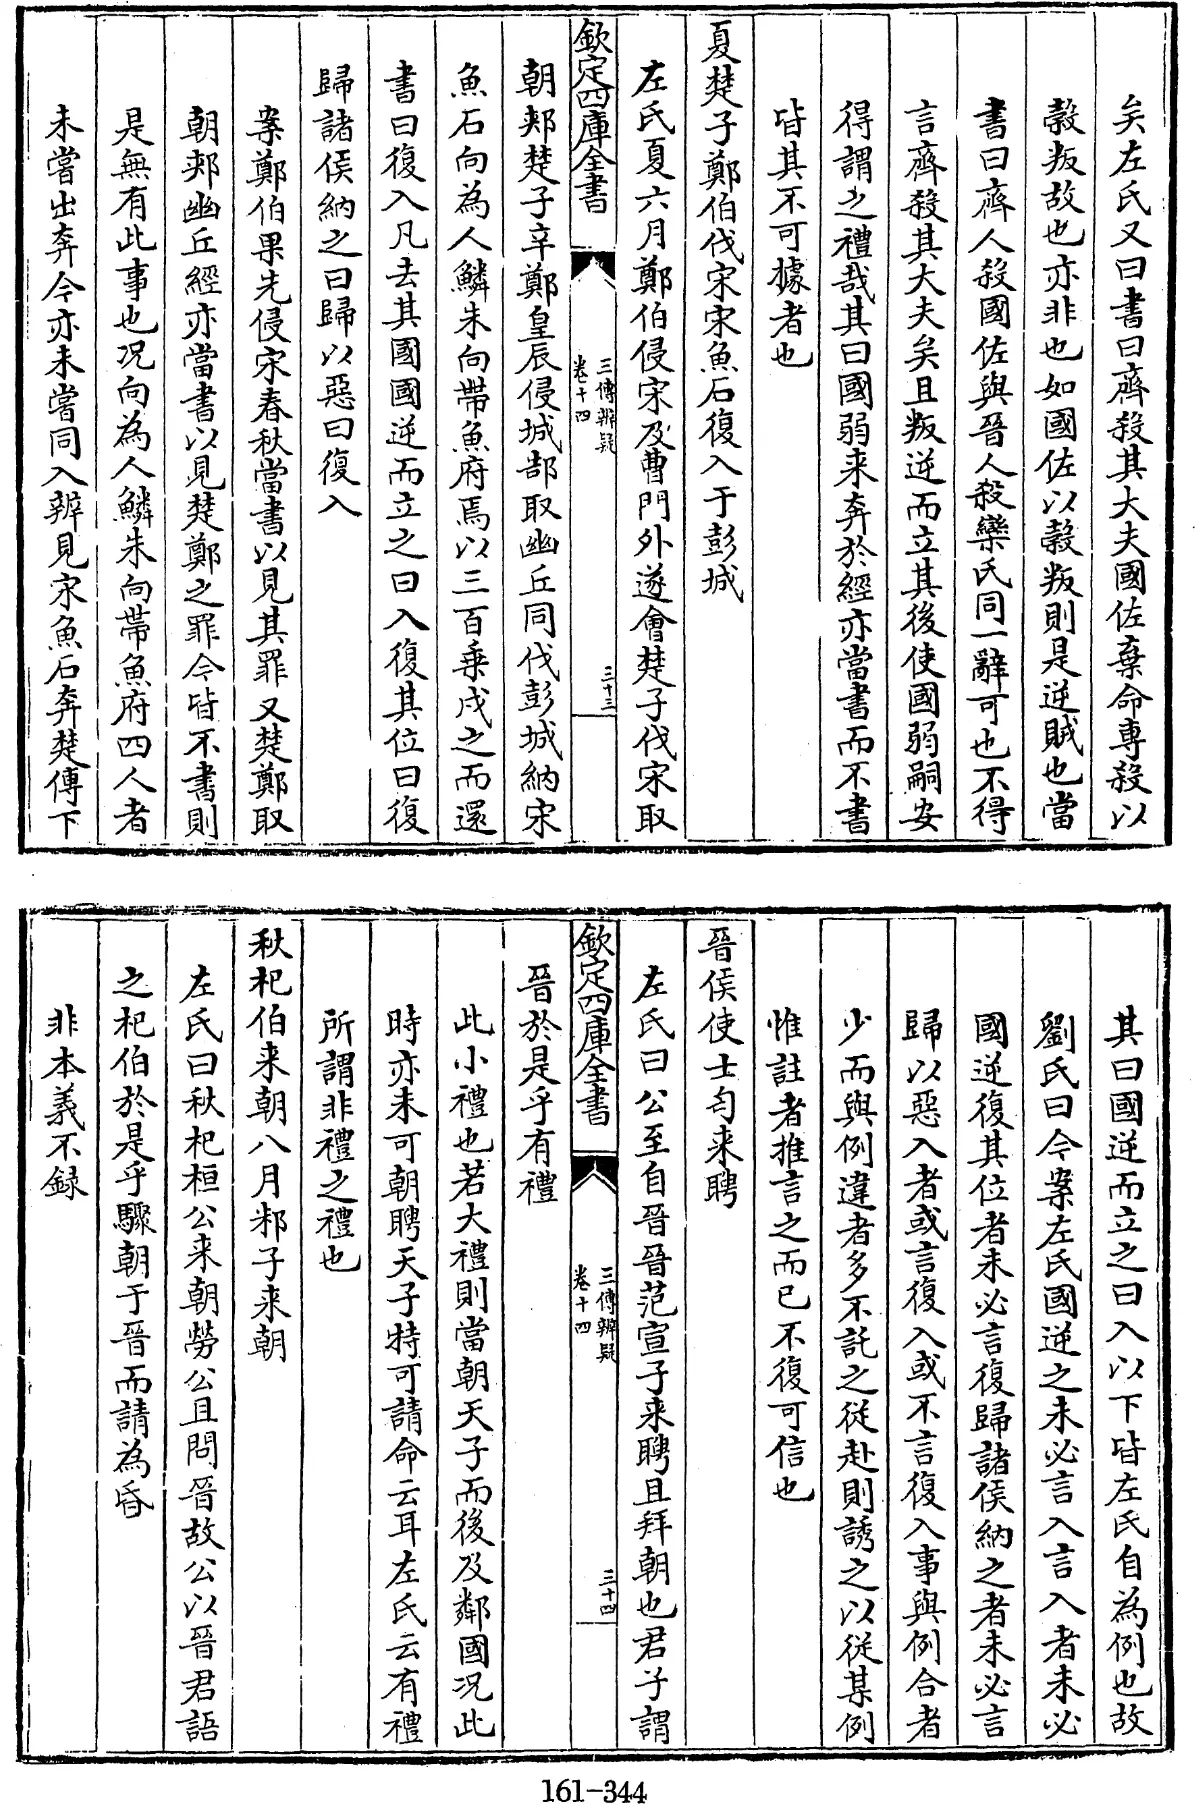 矣左氏又曰書曰齊殺其大夫國佐棄命專殺以
穀叛故也亦非也如國佐以穀叛則是逆賊也當
書曰齊人殺國佐與晉人殺欒氏同一辭可也不得
言齊殺其大夫矣且叛逆而立其後使國弱嗣安
得謂之禮哉其曰國弱来奔於經亦當書而不書
皆其不可據者也
夏楚子鄭伯伐宋宋魚石復入于彭城
左氏夏六月鄭伯侵宋及曹門外遂會楚子伐宋取
欽定四庫全書
三傳辨疑
卷十四
三十三
朝郟楚子辛鄭皇辰侵城郜取幽丘同伐彭城納宋
魚石向為人鱗朱向帶魚府焉以三百乗戍之而還
書曰復入凡去其國國逆而立之曰入復其位曰復
歸諸侯納之曰歸以惡曰復入
案鄭伯果先侵宋春秋當書以見其罪又楚鄭取
朝郟幽丘經亦當書以見楚鄭之罪今皆不書則
是無有此事也况向為人鱗朱向帶魚府四人者
未嘗出奔今亦未嘗同入辨見宋魚石奔楚傳下
其曰國逆而立之曰入以下皆左氏自為例也故
劉氏曰今案左氏國逆之未必言入言入者未必
國逆復其位者未必言復歸諸侯納之者未必言
歸以惡入者或言復入或不言復入事與例合者
少而與例違者多不託之從赴則誘之以從某例
惟註者推言之而已不復可信也
晉侯使士匄来聘
左氏曰公至自晉晉范宣子来聘且拜朝也君子謂
欽定四庫全書
三傳辨疑
卷十四
三十四
晉於是乎有禮
此小禮也若大禮則當朝天子而後及鄰國况此
時亦未可朝聘天子特可請命云耳左氏云有禮
所謂非禮之禮也
秋杞伯来朝八月邾子来朝
左氏曰秋杞桓公来朝勞公且問晉故公以晉君語
之杞伯於是乎驟朝于晉而請為昏
非本義不録
161-344